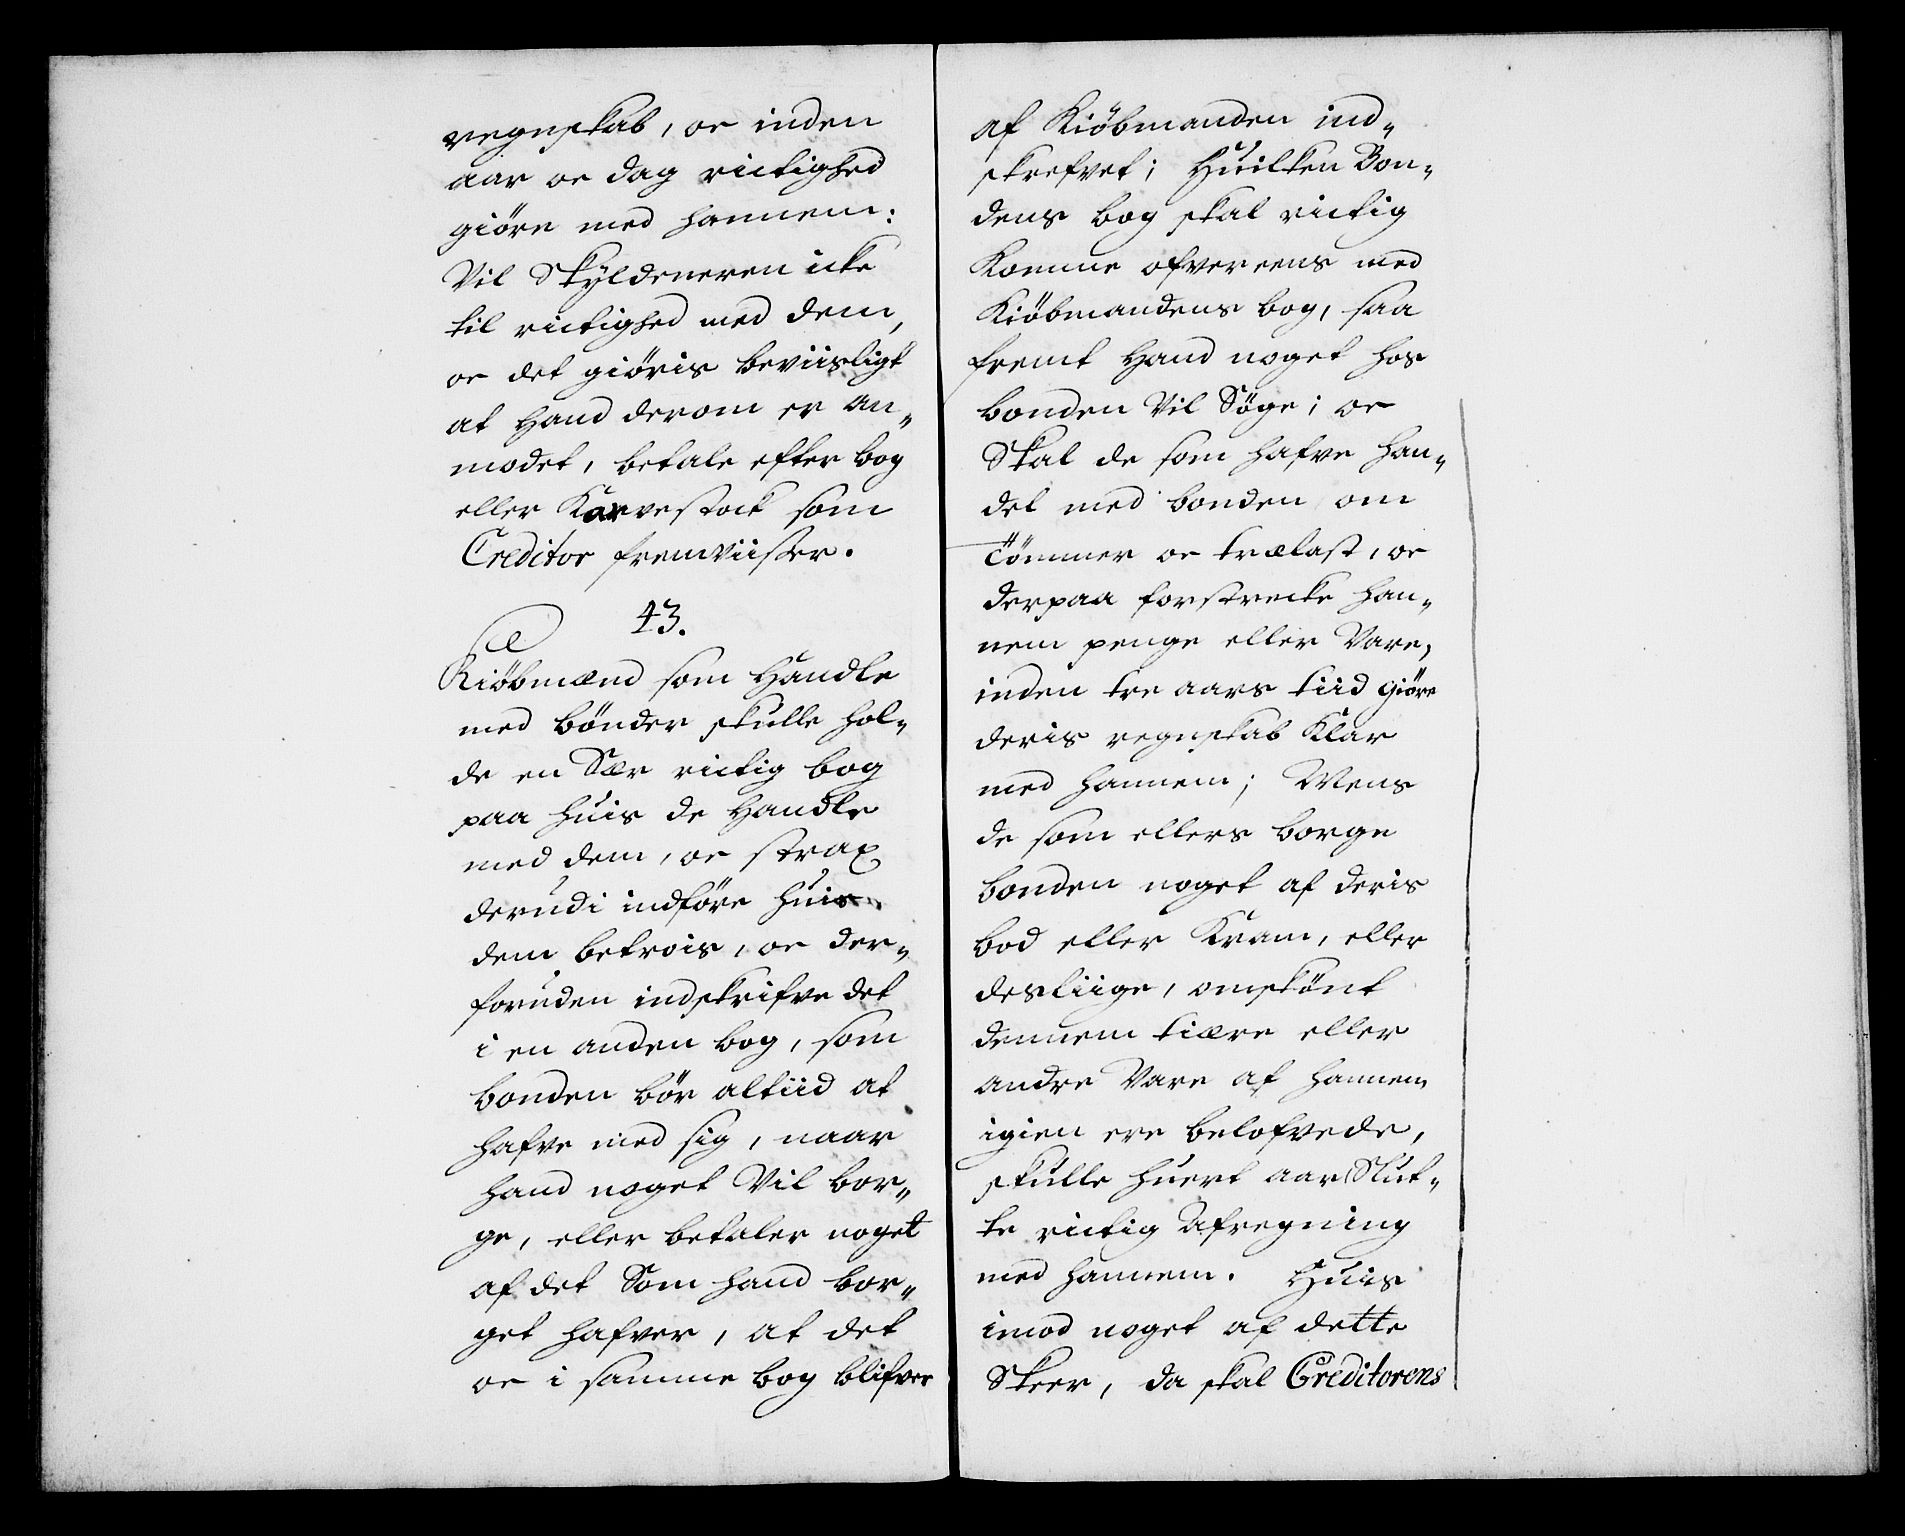 regnskab, oc inden
aar oc dag rictighed
giöre med hannem:
Vil Skyldeneren icke
til rictighed med dem,
oc det giöris beviisligt
at Hand derom er an„
modet, betale efter bog
eller Karvestock som
Creditor fremviisser.
43.
Kiöbmænd som Handle
med bönder skulle hol„
de en Sær rictig bog
paa huis de Handle
med dem, oc strax
derudi indföre huis
dem betrois, oc der„
foruden indskrifve det
i en anden bog, som
bonden bör altiid at
hafve med sig, naar
hand noget Vil bor„
ge, eller betaler noget
af det Som hand bor„
get hafver, at det
oc i samme bog blifver
af Kiöbmanden ind„
skrefvet; Huilken Bon„
dens bog skal rictig
Komme ofvereens med
Kiöbmandens bog, saa
fremt Hand noget hos
bonden Vil Söge; oc
Skal de som hafve han„
del med bonden om
Tömmer oc trælast, oc
derpaa forstrecke han„
nem penge eller Vare,
inden tre aars tiid giöre
deris regnskab Klar
med hannem; Mens
de som ellers borge
bonden noget af deris
bod eller Kram, eller
desliige, omskönt
dennem tiære eller
andre Vare af hannem
igien ere belofvede,
skulle huert aar Slut„
te rictig Afregning
med hannem. Huis
imod noget af dette
Skeer, da skal Creditorens